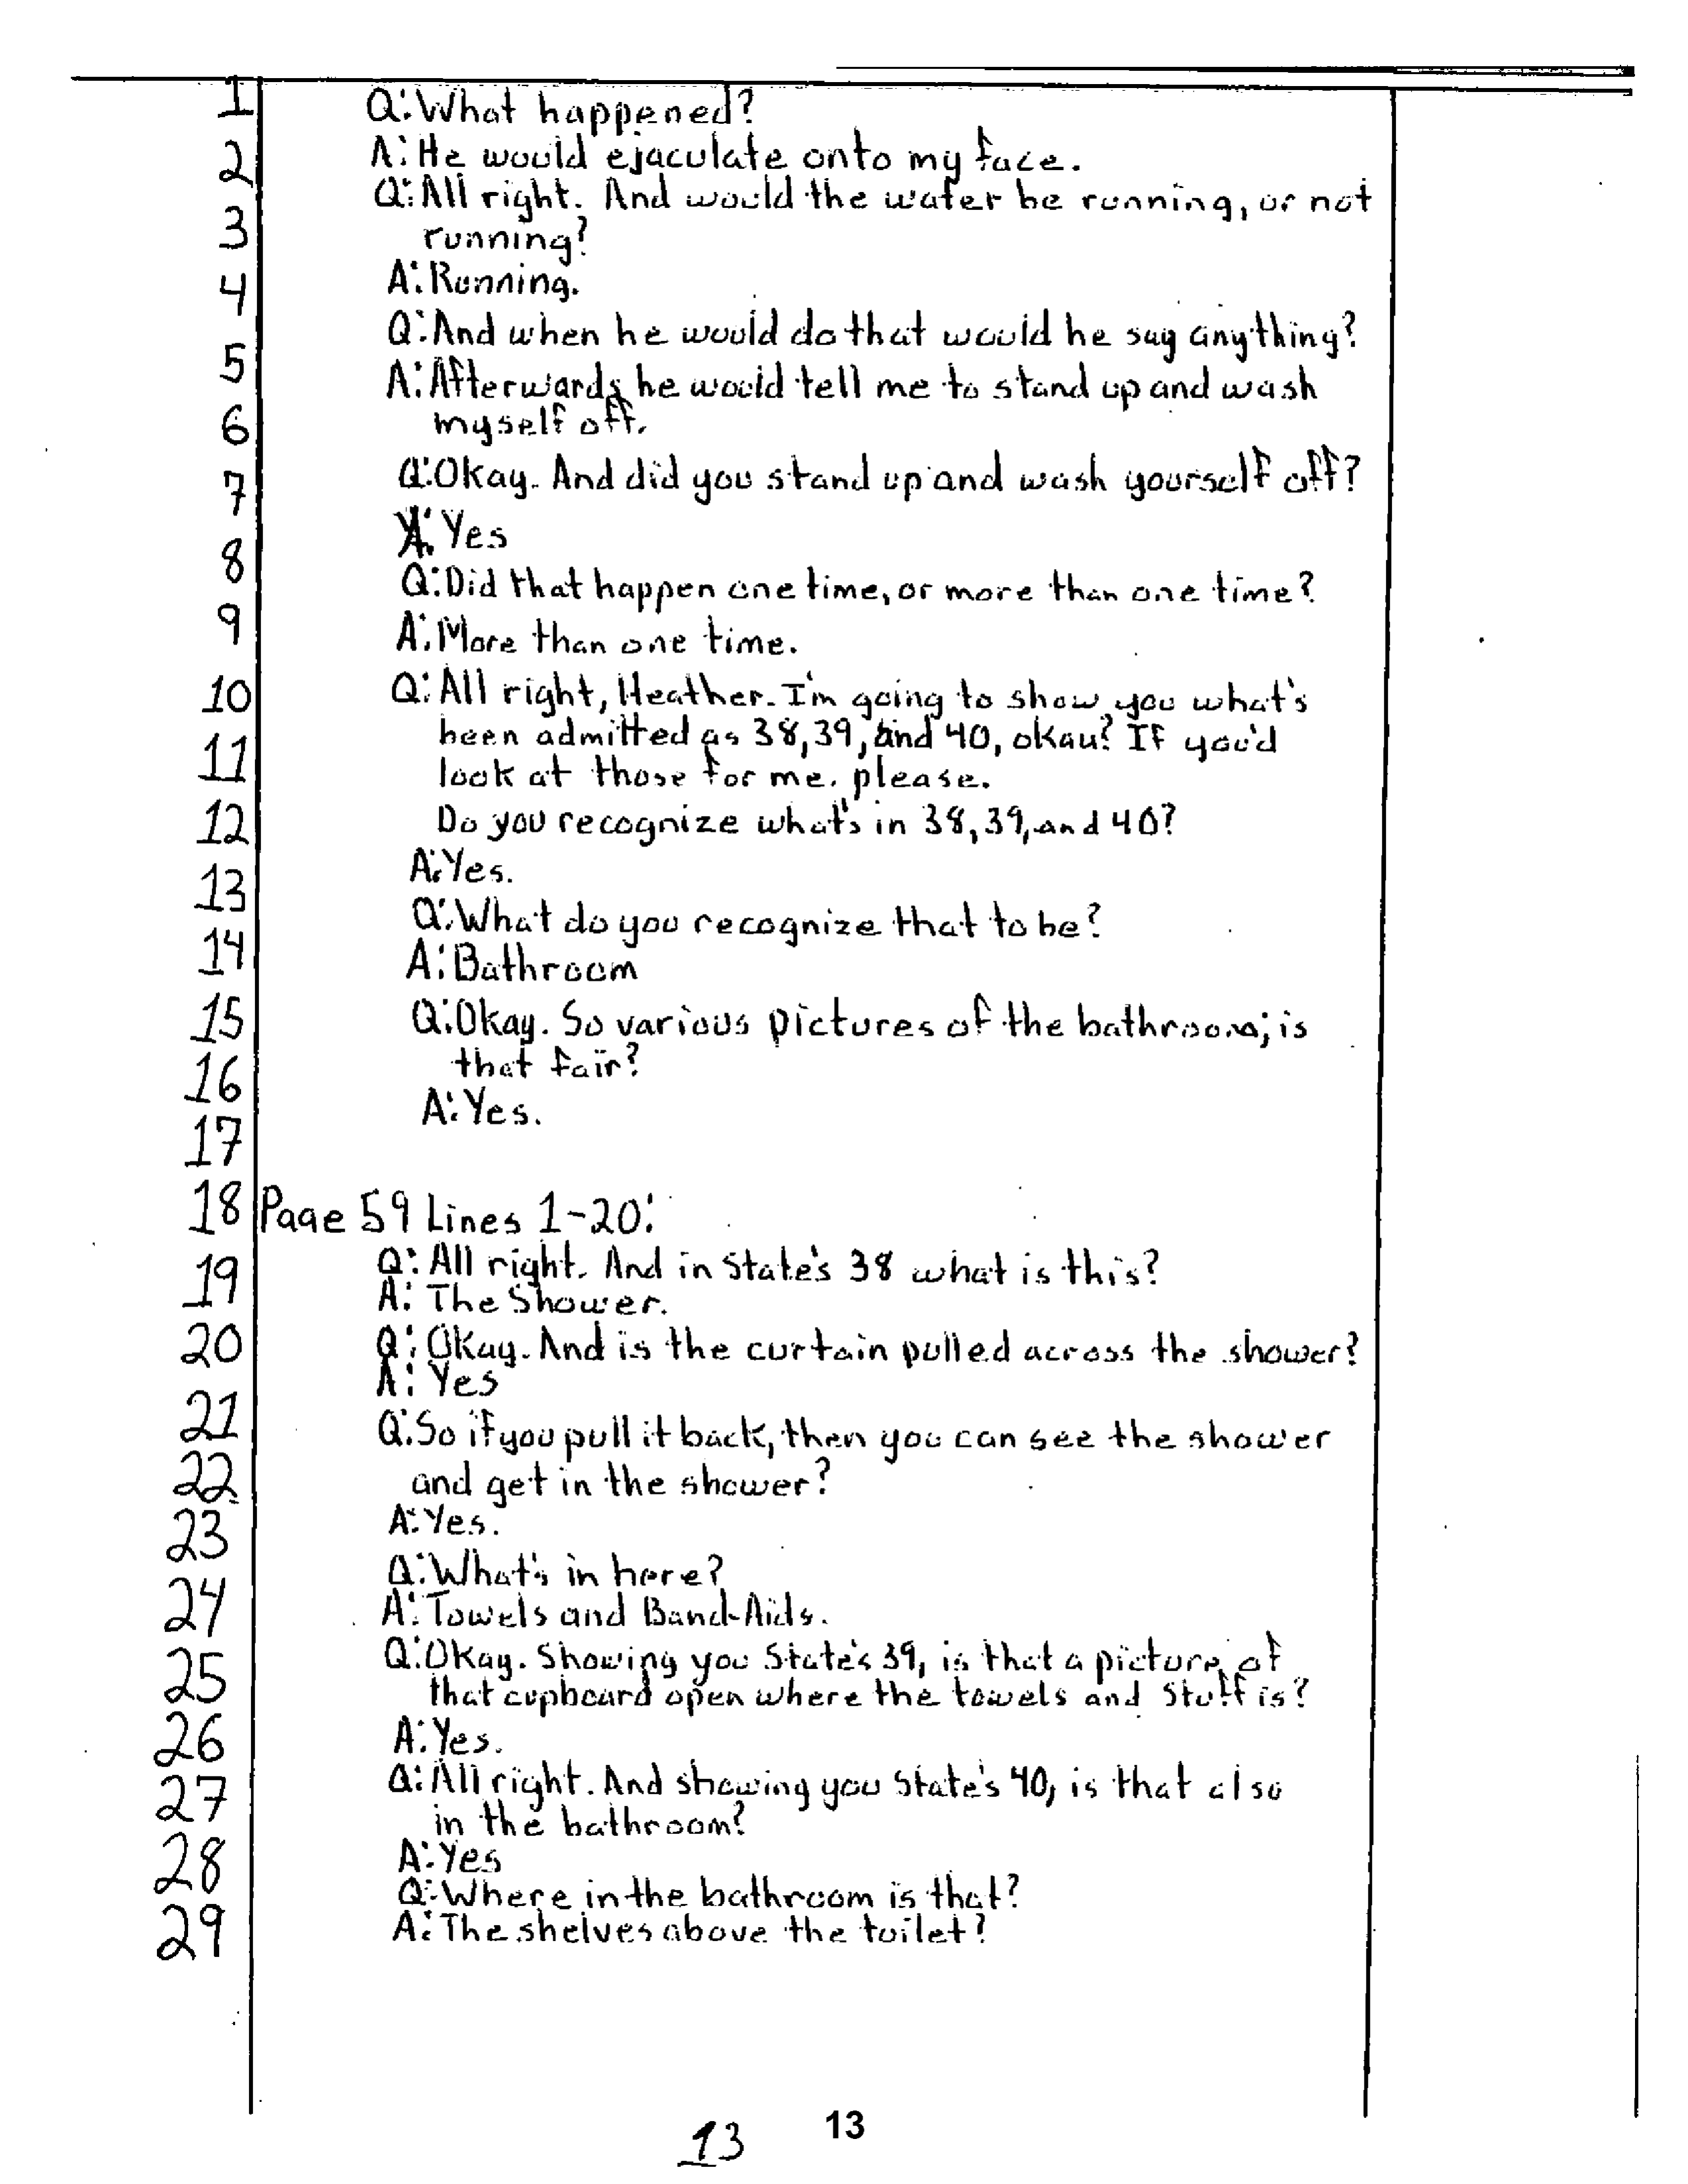 1 Q: What happened?
2 A: He would ejaculate onto my face.
Q: All right. And would the water be running, or not
3 running?
4 A: Running.
Q: And when he would do that would he say anything?
5 A: Afterwards he would tell me to stand up and wash
6 myself off.
7 Q: Okay. And did you stand up and wash yourself off?
A: Yes
8 Q: Did that happen one time, or more than one time?
9 A: More than one time.
10 Q: All right, Heather. I'm going to show you what's
11 been admitted as 38, 39, and 40, okay? If you'd
look at those for me. please.
12 Do you recognize what's in 38, 39, and 40?
13 A: Yes.
Q: What do you recognize that to be?
14 A: Bathroom
15 Q: Okay. So various pictures of the bathroom; is
16 that fair?
A: Yes.
17
18 Page 59 Lines 1-20:
19 Q: All right. And in State's 38 what is this?
A: The Shower.
20 Q: Okay. And is the curtain pulled across the shower?
A: Yes
21 Q: So if you pull it back, then you can see the shower
22 and get in the shower?
23 A: Yes.
Q: What's in here?
24 A: Towels and Band-Aids.
25 Q: Okay. Showing you State's 39, is that a picture of
that cupboard open where the towels and stuff is?
26 A: Yes.
27 Q: All right. And showing you State's 40, is that also
in the bathroom?
28 A: Yes
Q: Where in the bathroom is that?
29 A: The shelves above the toilet?
13 13